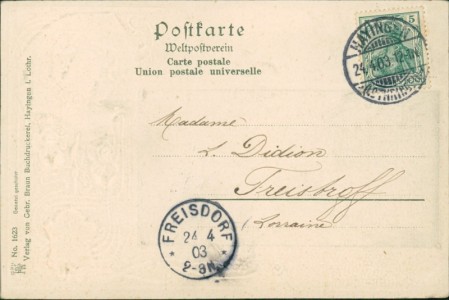 Postkarte
Weltpostverein
Carte postale
Union postale universelle
5
HAYINGEN
24.4.03
(LOTHR.)
Madame
L. Didion
Freistroff
(Lorraine)
* FREISDORF *
24 4
03
2-3N.
No. 1623
Verlag von Gebr. Braun Buchdruckerei, Hayingen i. Lothr.